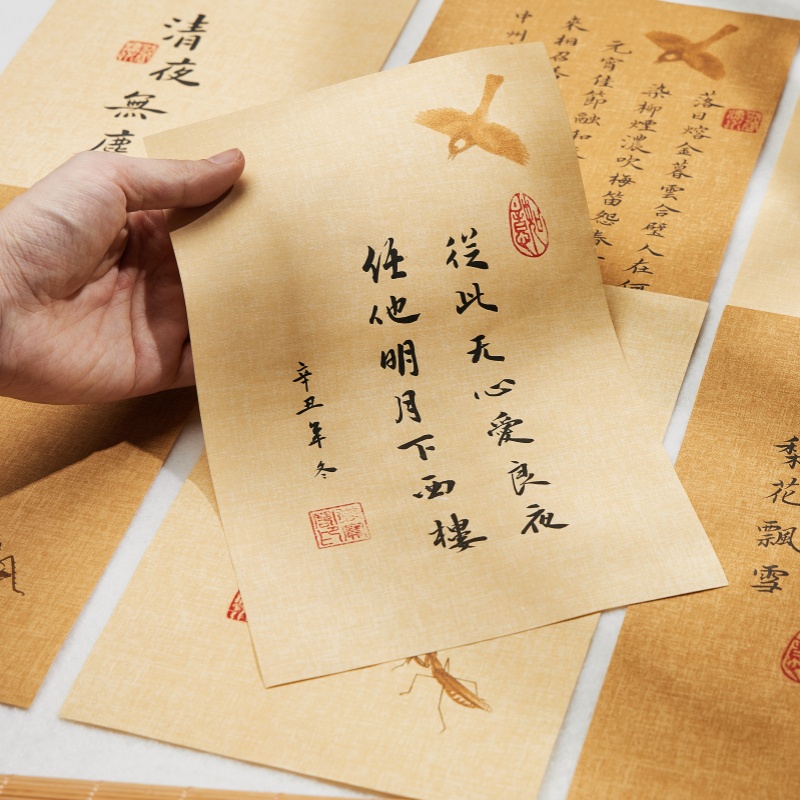 從此无心愛良夜
任他明月下西樓
辛丑年冬
如意
清夜無塵
落日熔金暮雲合璧人在何
染柳煙濃吹梅笛怨春
元宵佳節融和
來相召香
中州
梨花飄雪